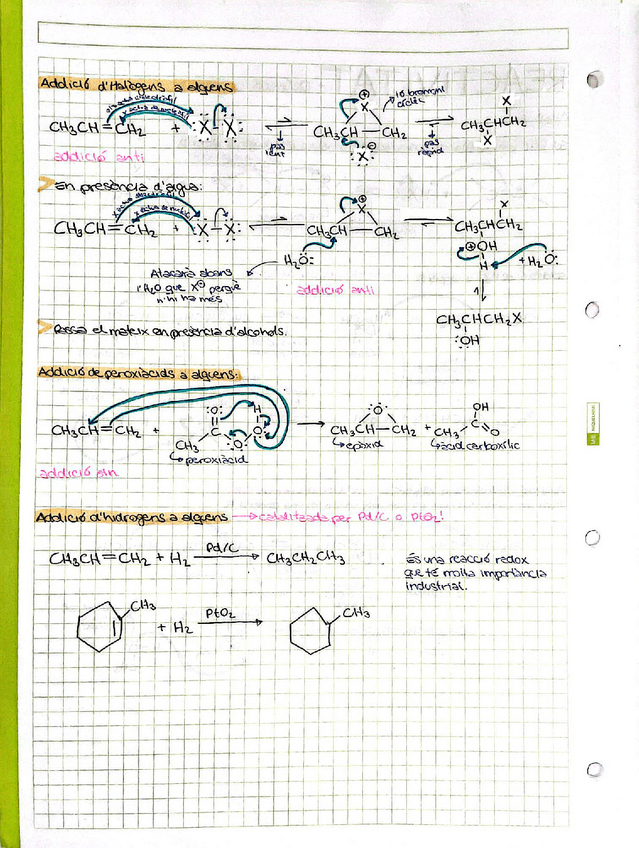 Addició d'Halògens a alquens
CH₃CH=CH₂ + :X—X: ⇌ CH₃CH—CH₂ ⇌ CH₃CHCH₂
X⊕
ió bromoni cíclic
pas lent
:X:⊖
pas ràpid
X
X
addició anti
> En presència d'aigua:
CH₃CH=CH₂ + :X—X: ⇌ CH₃CH—CH₂ ⇌ CH₃CHCH₂
X⊕
X
H₂O:
⊕OH
H + H₂O:
Atacarà abans
l'H₂O que X⊖ perquè
n'hi ha més
addició anti
CH₃CHCH₂X
:OH
> Passa el mateix en presència d'alcohols.
Addició de peroxiàcids a alquens:
CH₃CH=CH₂ + CH₃ C :O: :O: :O: H → CH₃CH—CH₂ :O: + CH₃ C OH O
↳ peroxiàcid
↳ epòxid
↳ àcid carboxílic
addició sin
Addició d'hidrogens a alquens → catalitzada per Pd/C o PtO₂!
CH₃CH=CH₂ + H₂ Pd/C → CH₃CH₂CH₃
És una reacció redox
que té molta importància
industrial.
CH₃ + H₂ PtO₂ → CH₃